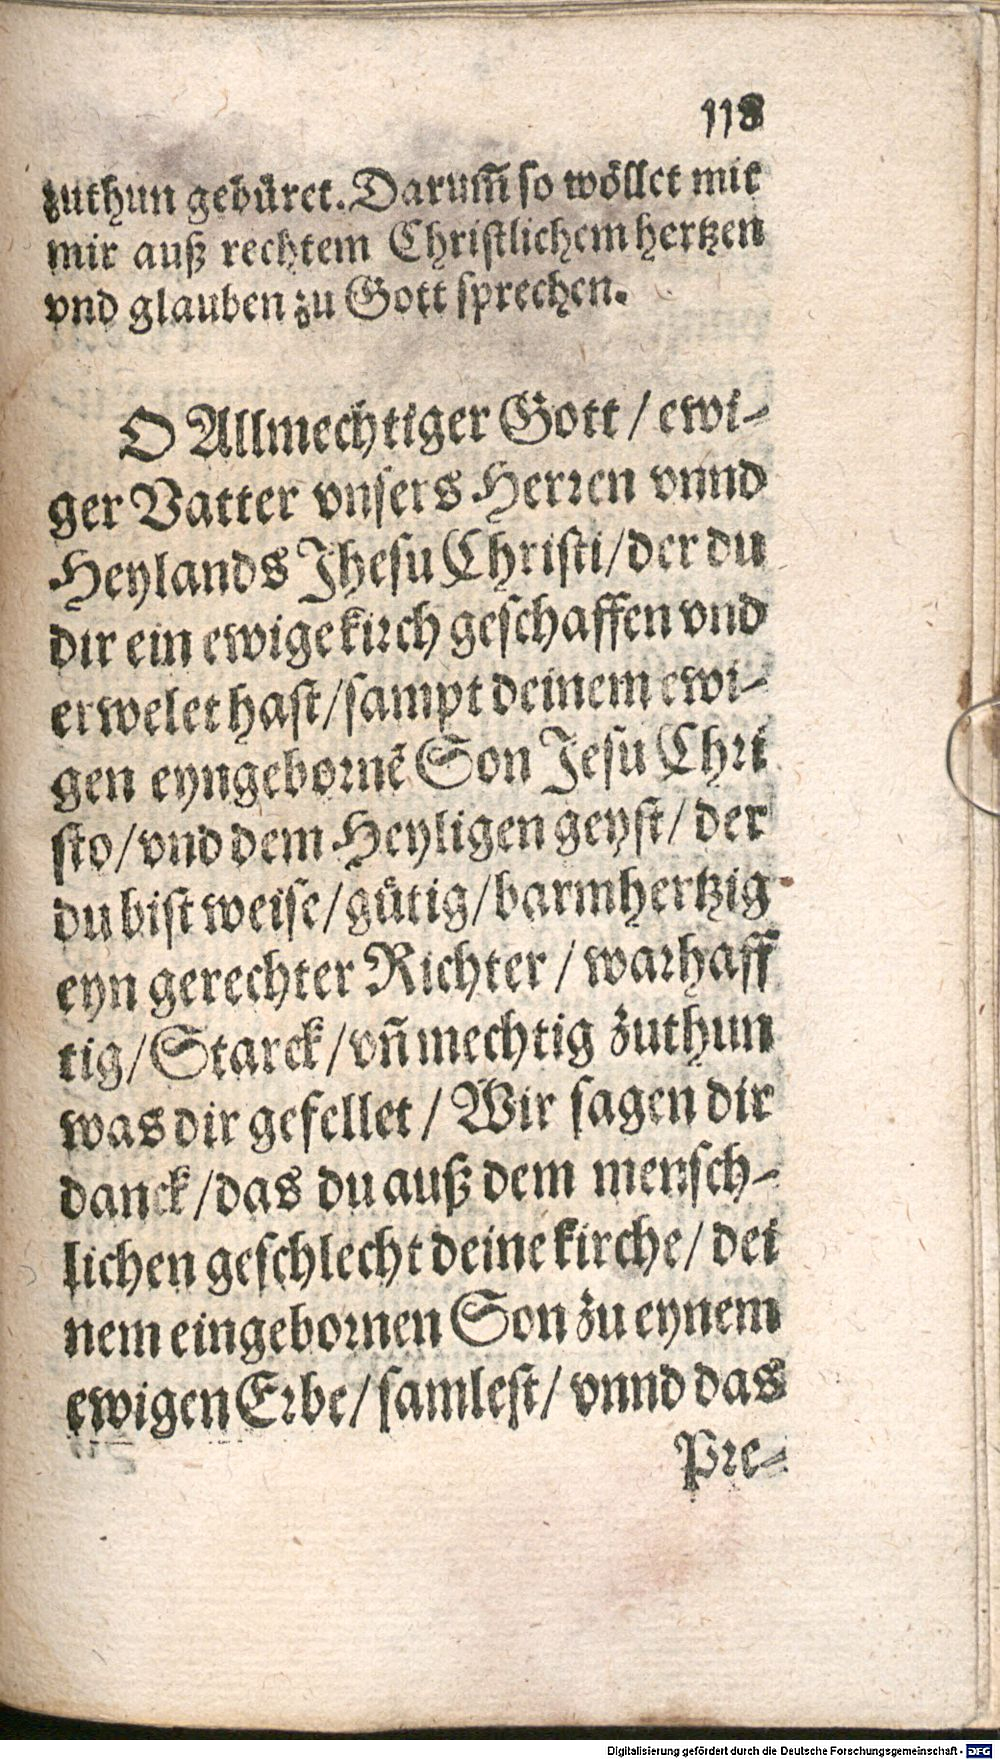 118
zuthun gebüret. Darum̃ so wöllet mit
mir auß rechtem Christlichem hertzen
vnd glauben zu Gott sprechen.
O Allmechtiger Gott / ewi-
ger Vatter vnsers Herren vnnd
Heylands Jhesu Christi / der du
dir ein ewige kirch geschaffen vnd
erwelet hast / sampt deinem ewi-
gen eyngebornē Son Jesu Chri
sto / vnd dem Heyligen geyst / der
du bist weise / gütig / barmhertzig
eyn gerechter Richter / warhaff
tig / Starck / vñ mechtig zuthun
was dir gefellet / Wir sagen dir
danck / das du auß dem mensch-
lichen geschlecht deine kirche / dei
nem eingebornen Son zu eynem
ewigen Erbe / samlest / vnnd das
Pre-
Digitalisierung gefördert durch die Deutsche Forschungsgemeinschaft - DFG